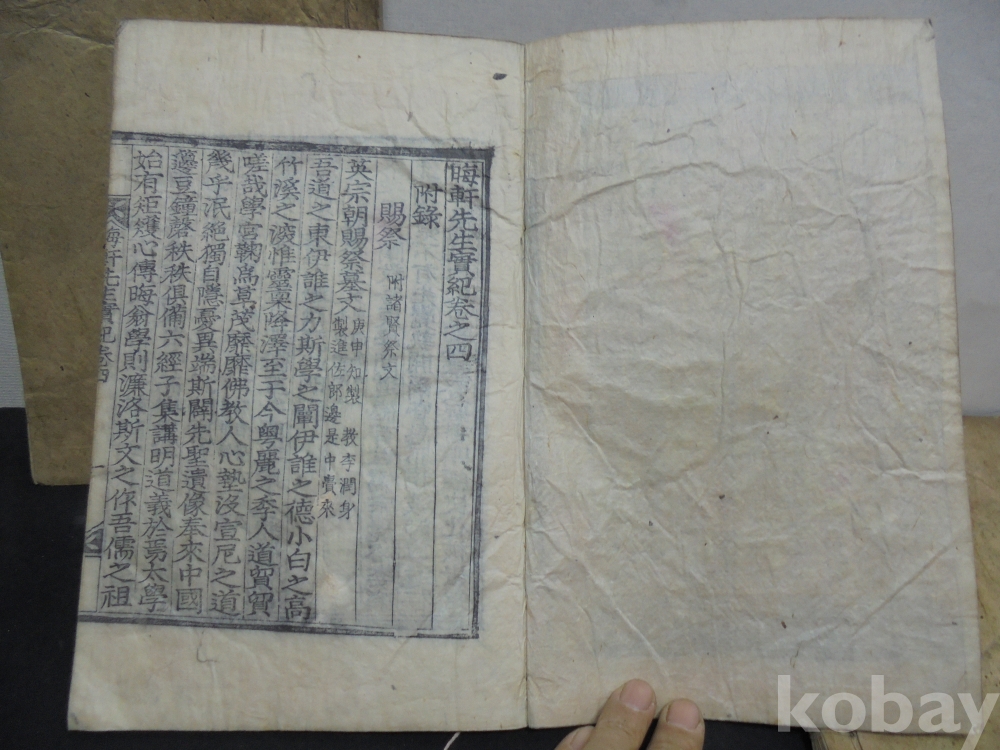 晦軒先生實紀卷之四
附錄
賜祭 附諸賢祭文
英宗朝賜祭墓文 庚申 知製 教李潤身
製進佐郎邊是中賫來
吾道之東伊誰之力斯學之闡伊誰之德小白之高
竹溪之深惟靈奧降澤至于今粤麗之季人道貿貿
嗟哉學宮鞠爲草茂靡靡佛教人心墊沒宣尼之道
幾乎泯絶獨自隱憂異端斯闢先聖遺像奉來中國
籩豆鐘磬秩秩俱備六經子集講明道義於焉太學
始有矩矱心傳晦翁學則濂洛斯文之作吾儒之祖
晦軒先生實紀卷四
一
kobay